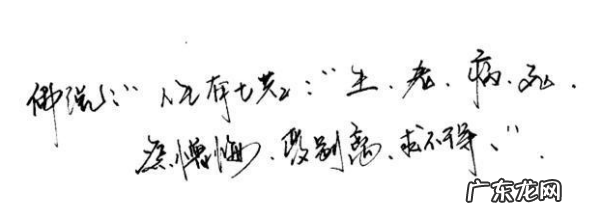 佛说："人生有七苦："生、老、病、死、
怨憎悔、爱别离、求不得、".
广东龙网